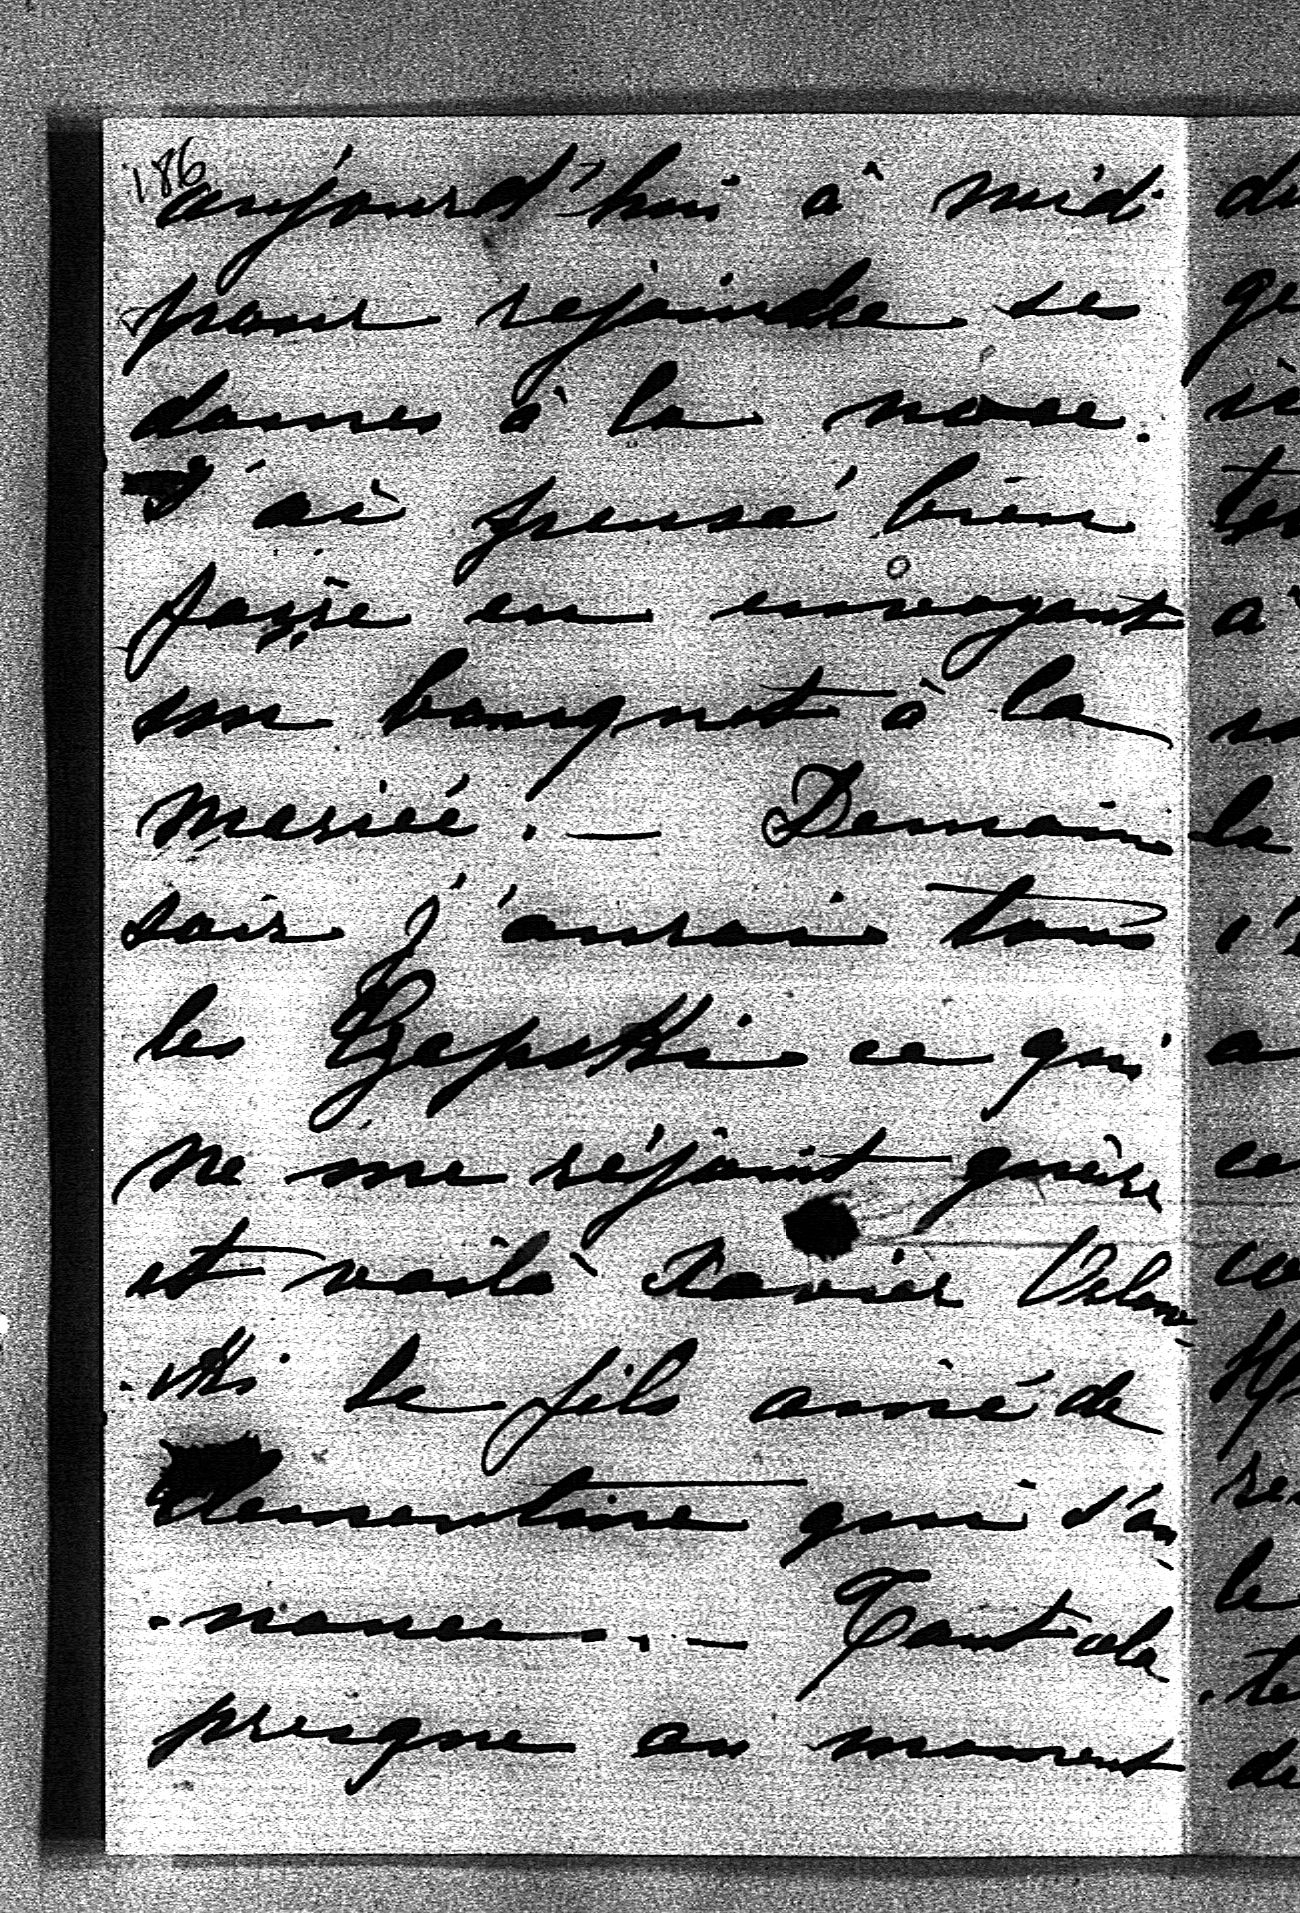 186
aujourd'hui à midi
pour rejoindre ses
dames à la noce.
J'ai pensé bien
faire en envoyant
un bouquet à la
mariée. — Demain
soir j'aurai tous
les Czapski ce qui
ne me réjouit guère
et voilà Xavier Orlow-
ski le fils aîné de
Clementine qui s'an-
nonce. — Tout cela
presque au moment